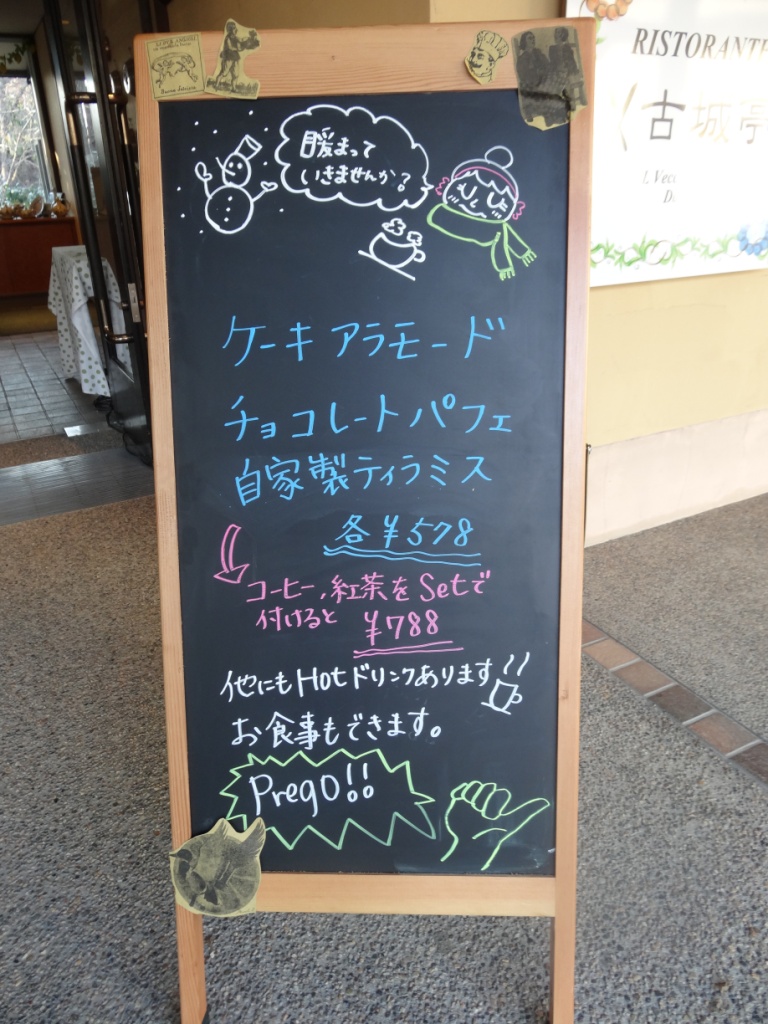 暖まって
いきませんか?
ケーキ アラモード
チョコレートパフェ
自家製ティラミス
各 ¥578
コーヒー、紅茶をSetで
付けると ¥788
他にもHotドリンクあります
お食事もできます。
Prego!!
RISTORANTE
古城亭